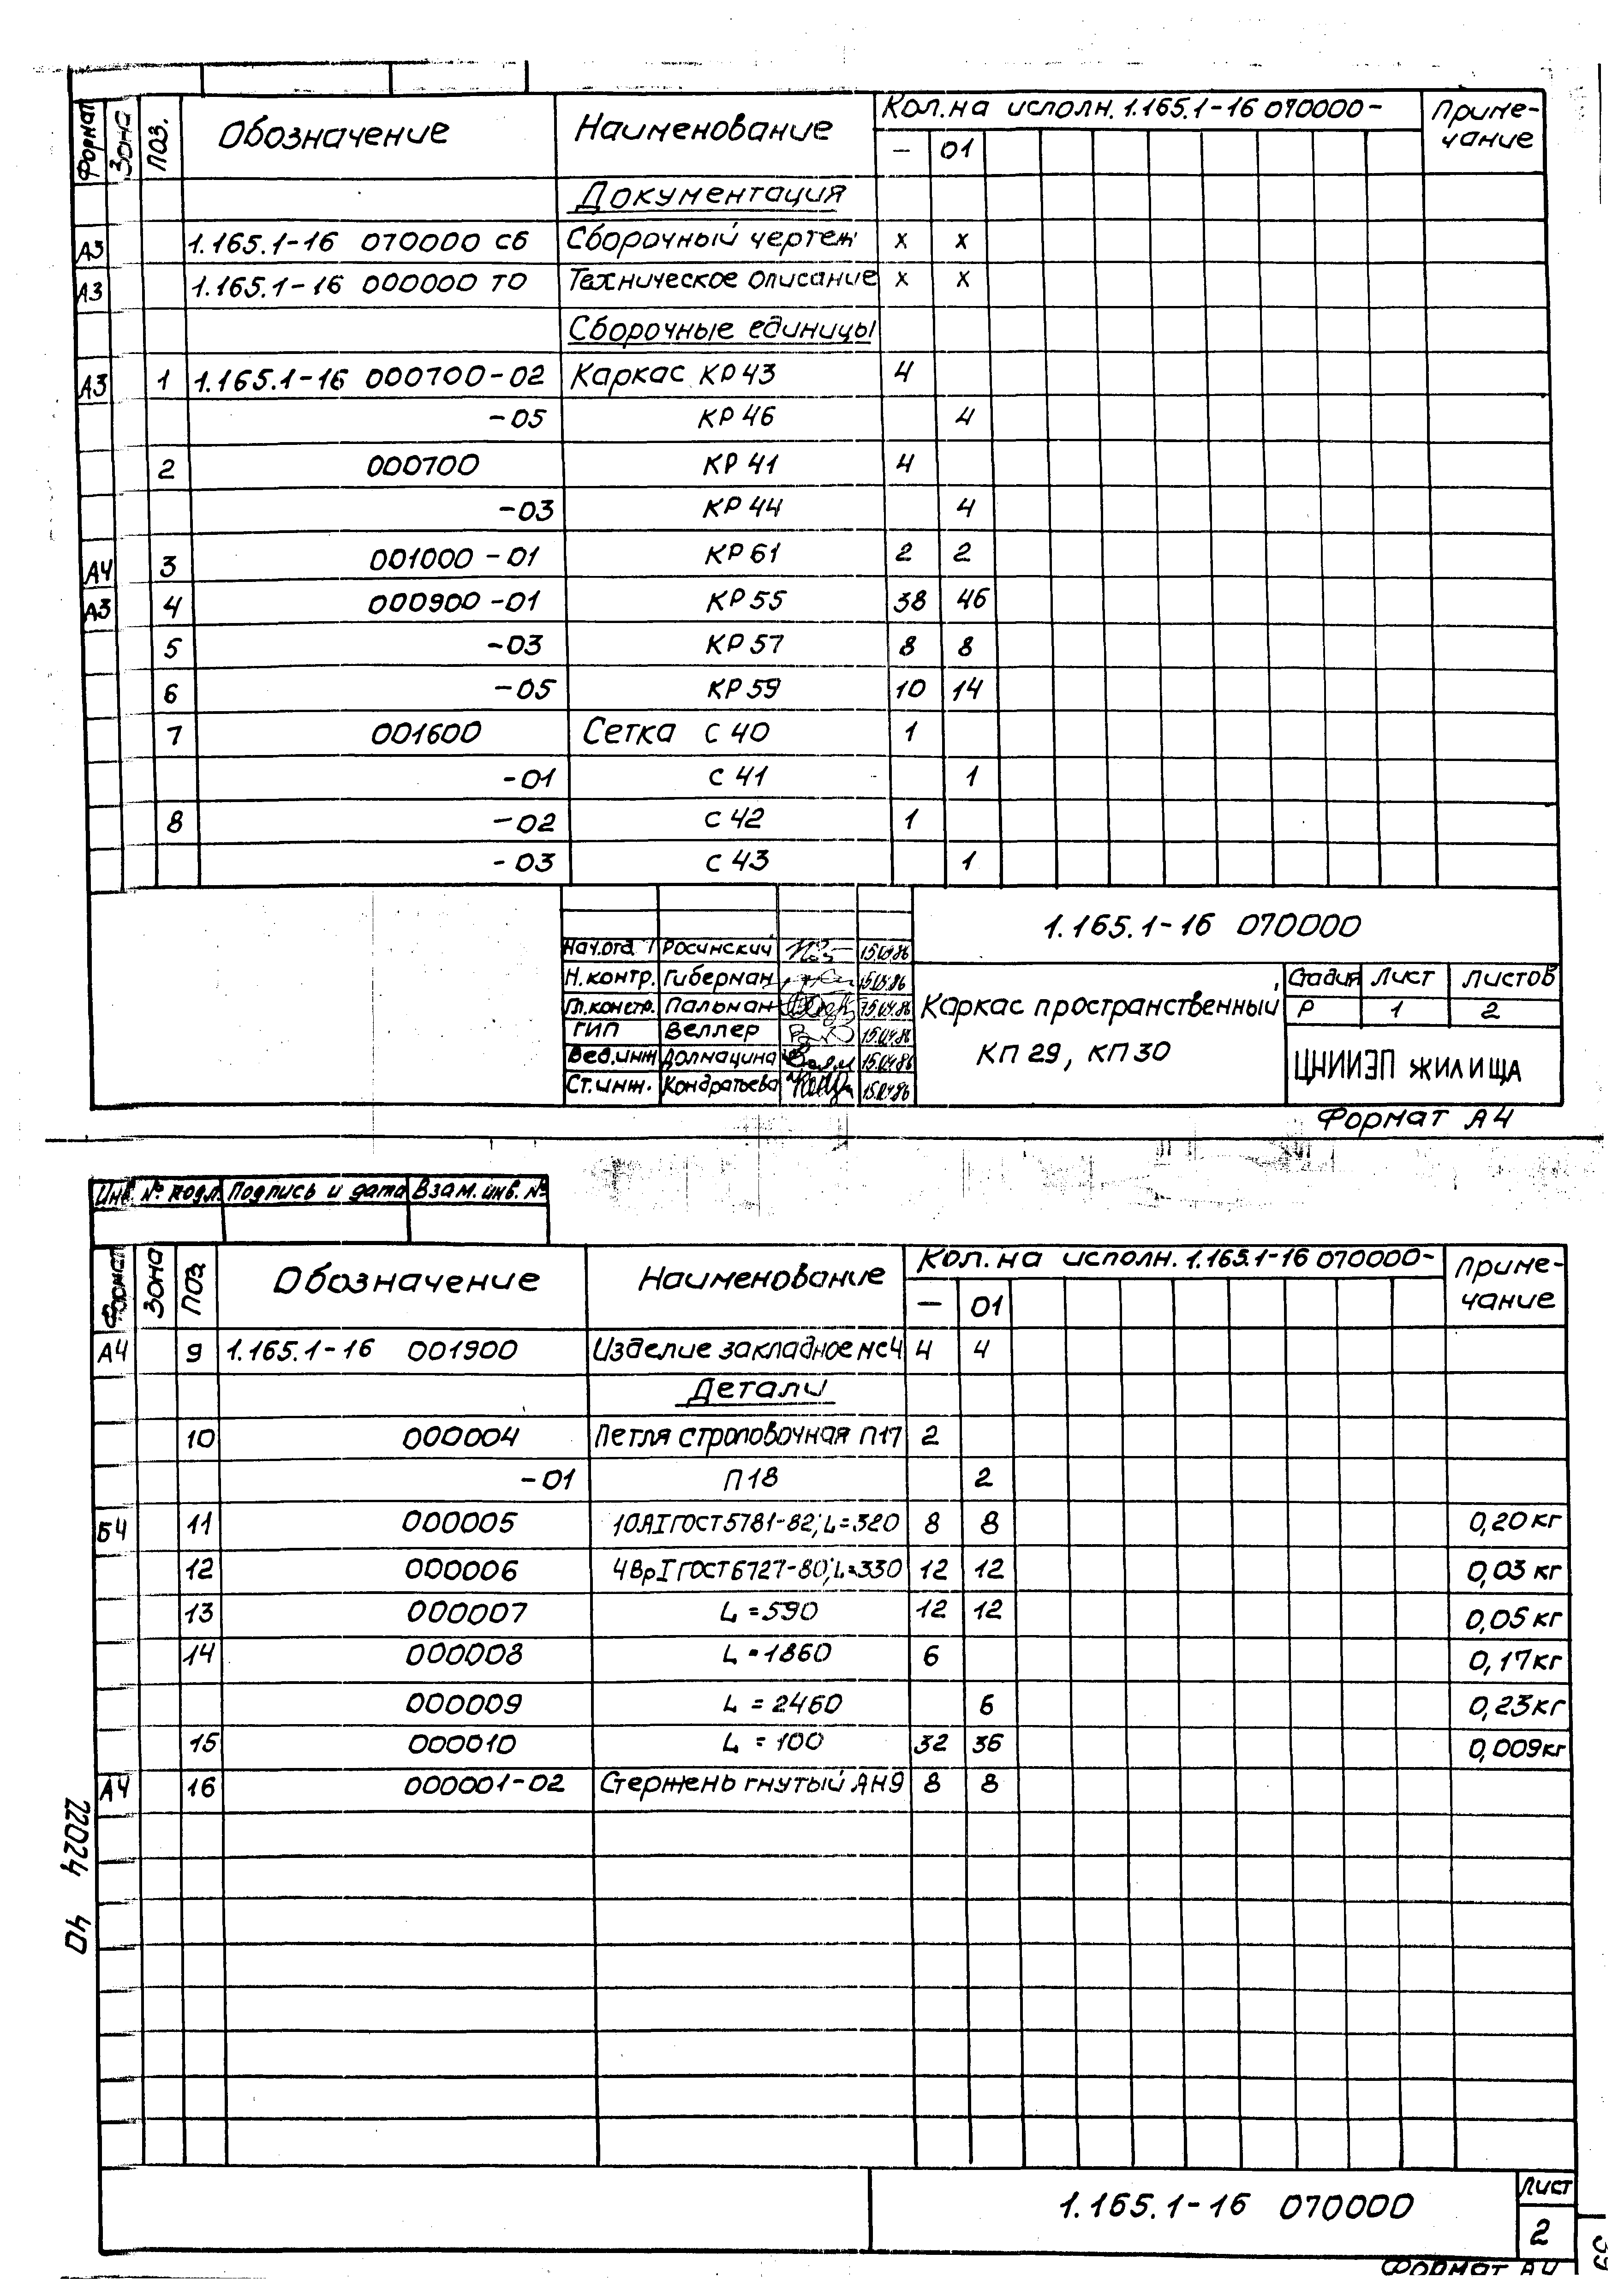 Формат Зона Поз. Обозначение Наименование Кол. на исполн. 1.165.1-16 070000- Приме-
чание
– 01
Документация
А3 1.165.1-16 070000 СБ Сборочный чертеж х х
А3 1.165.1-16 000000 ТО Техническое описание х х
Сборочные единицы
А3 1 1.165.1-16 000700-02 Каркас КР43 4
-05 КР46 4
2 000700 КР41 4
-03 КР44 4
А4 3 001000-01 КР61 2 2
А3 4 000900-01 КР55 38 46
5 -03 КР57 8 8
6 -05 КР59 10 14
7 001600 Сетка С40 1
-01 С41 1
8 -02 С42 1
-03 С43 1
1.165.1-16 070000
Нач.отд. Росинский 15.04.86
Н.контр. Гиберман 15.04.86
Гл.констр. Пальман 15.04.86
ГИП Веллер 15.04.86
Вед.инж Долмацина 15.04.86
Ст.инж. Кондратьева 15.04.86
Каркас пространственный
КП29, КП30
Стадия Лист Листов
Р 1 2
ЦНИИЭП ЖИЛИЩА
Формат А4
Инв. № подл. Подпись и дата Взам. инв. №
Формат Зона Поз. Обозначение Наименование Кол. на исполн. 1.165.1-16 070000- Приме-
чание
– 01
А4 9 1.165.1-16 001900 Изделие закладное МС4 4 4
Детали
10 000004 Петля строповочная П17 2
-01 П18 2
Б4 11 000005 10АI ГОСТ 5781-82; L=320 8 8 0,20кг
12 000006 4ВрI ГОСТ 6727-80; L=330 12 12 0,03 кг
13 000007 L=590 12 12 0,05 кг
14 000008 L=1860 6 0,17кг
000009 L=2460 6 0,23кг
15 000010 L=100 32 36 0,009кг
А4 16 000001-02 Стержень гнутый АН9 8 8
22024 40
1.165.1-16 070000
Лист
2
Формат А4
39